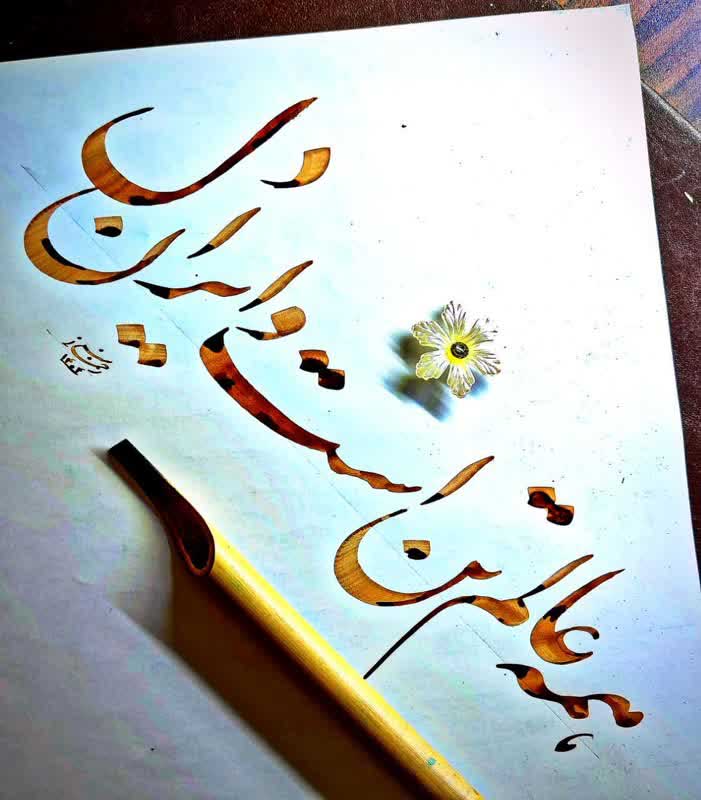 همه عالم تن است و ایران دل
۱۴۰۴